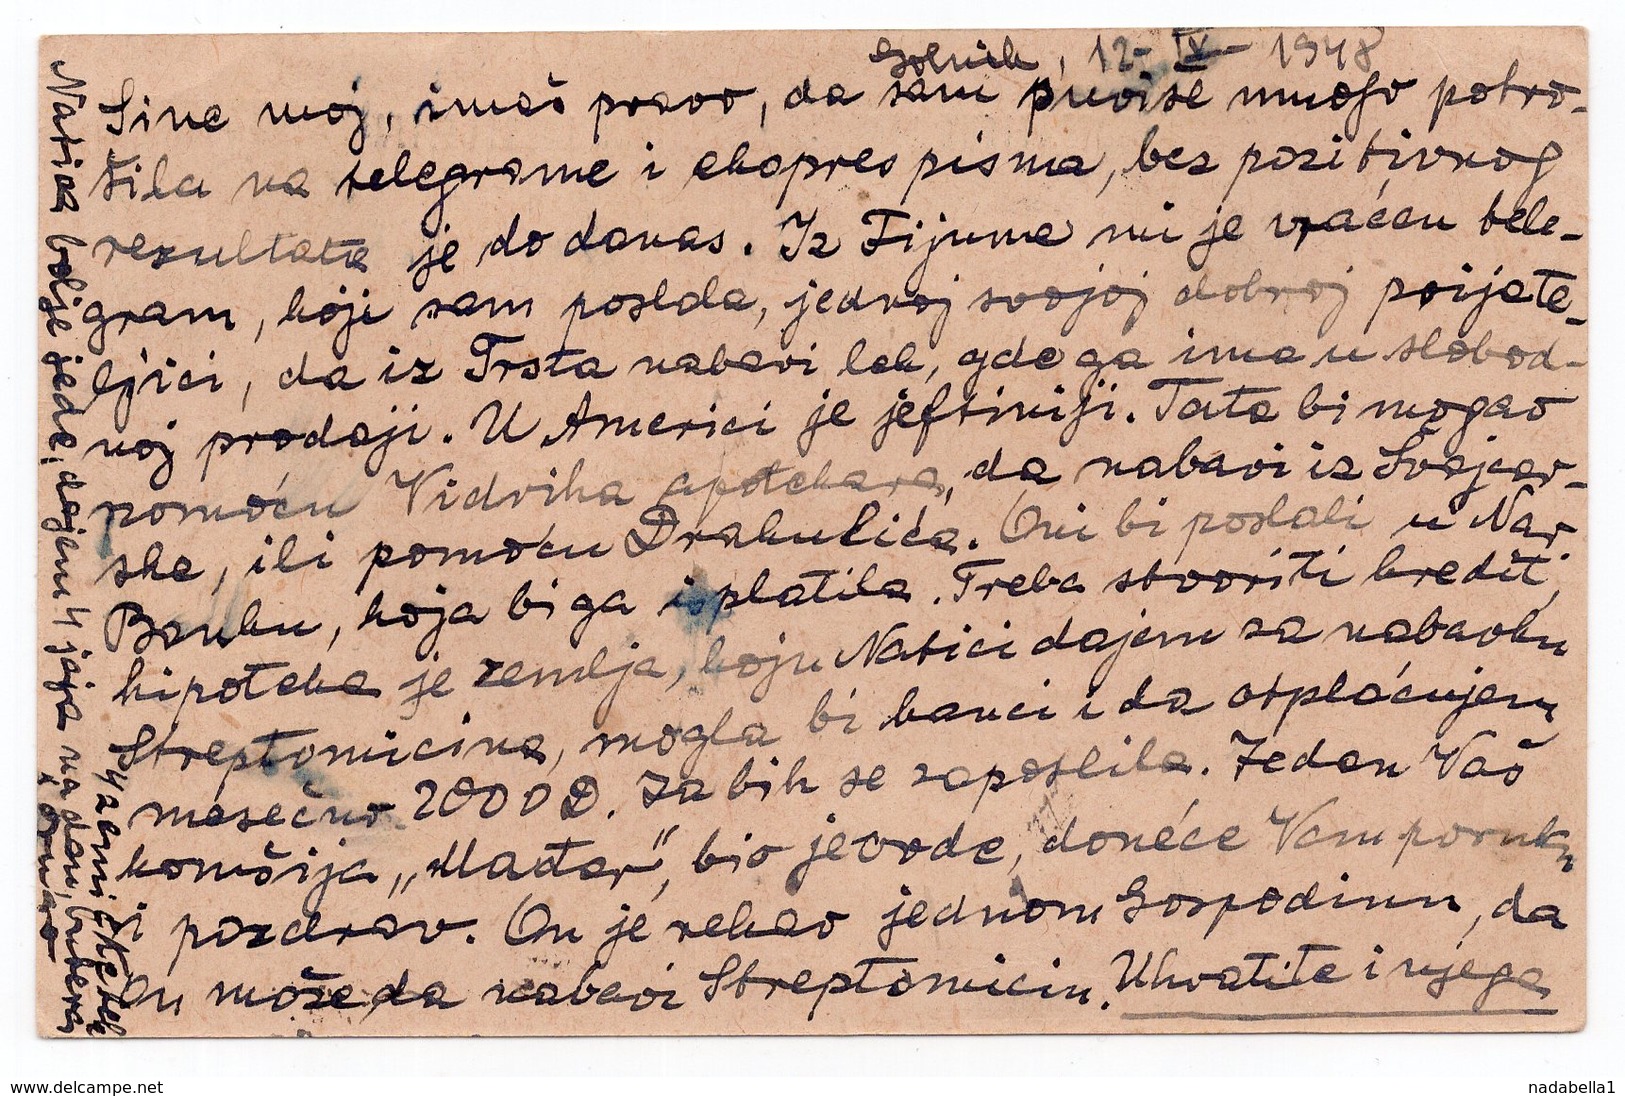 Golnik, 12-IX-1948
Sine moj, imaš pravo, da sam previše mnogo potro-
šila na telegrame i ekopres pisma, bez pozitivnog
rezultata je do danas. Iz Fijume mi je vraćen tele-
gram, koji sam poslala, jednoj svojoj dobroj prijate-
ljici, da iz Trsta nabavi lek, gde ga ima u slobod-
noj prodaji. U Americi je jeftiniji. Tata bi mogao
pomoću Vidriha apotekara, da nabavi iz Švajcar-
ske, ili pomoću Drakulića. Oni bi poslali u Nar
Banku, koja bi ga isplatila. Treba stvoriti kredit,
hipoteka je zemlja, koju Natici dajem za nabavku
Streptomicina, mogla bi banci i da otplaćujem
mesečno 2000 D. Ja bih se zaposlila. Jedan Vaš
komšija, „Mađar", bio je ovde, doneće Vam poruku
i pozdrav. On je rekao jednom Gospodinu, da
On može da nabavi Streptomicin. Uhvatite i njega
Natica bolje jede, dajem 4 jaja na dan, butera